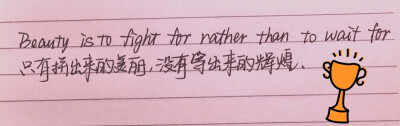 Beauty is to fight for rather than to wait for
只有拼出来的美丽,没有等出来的辉煌.